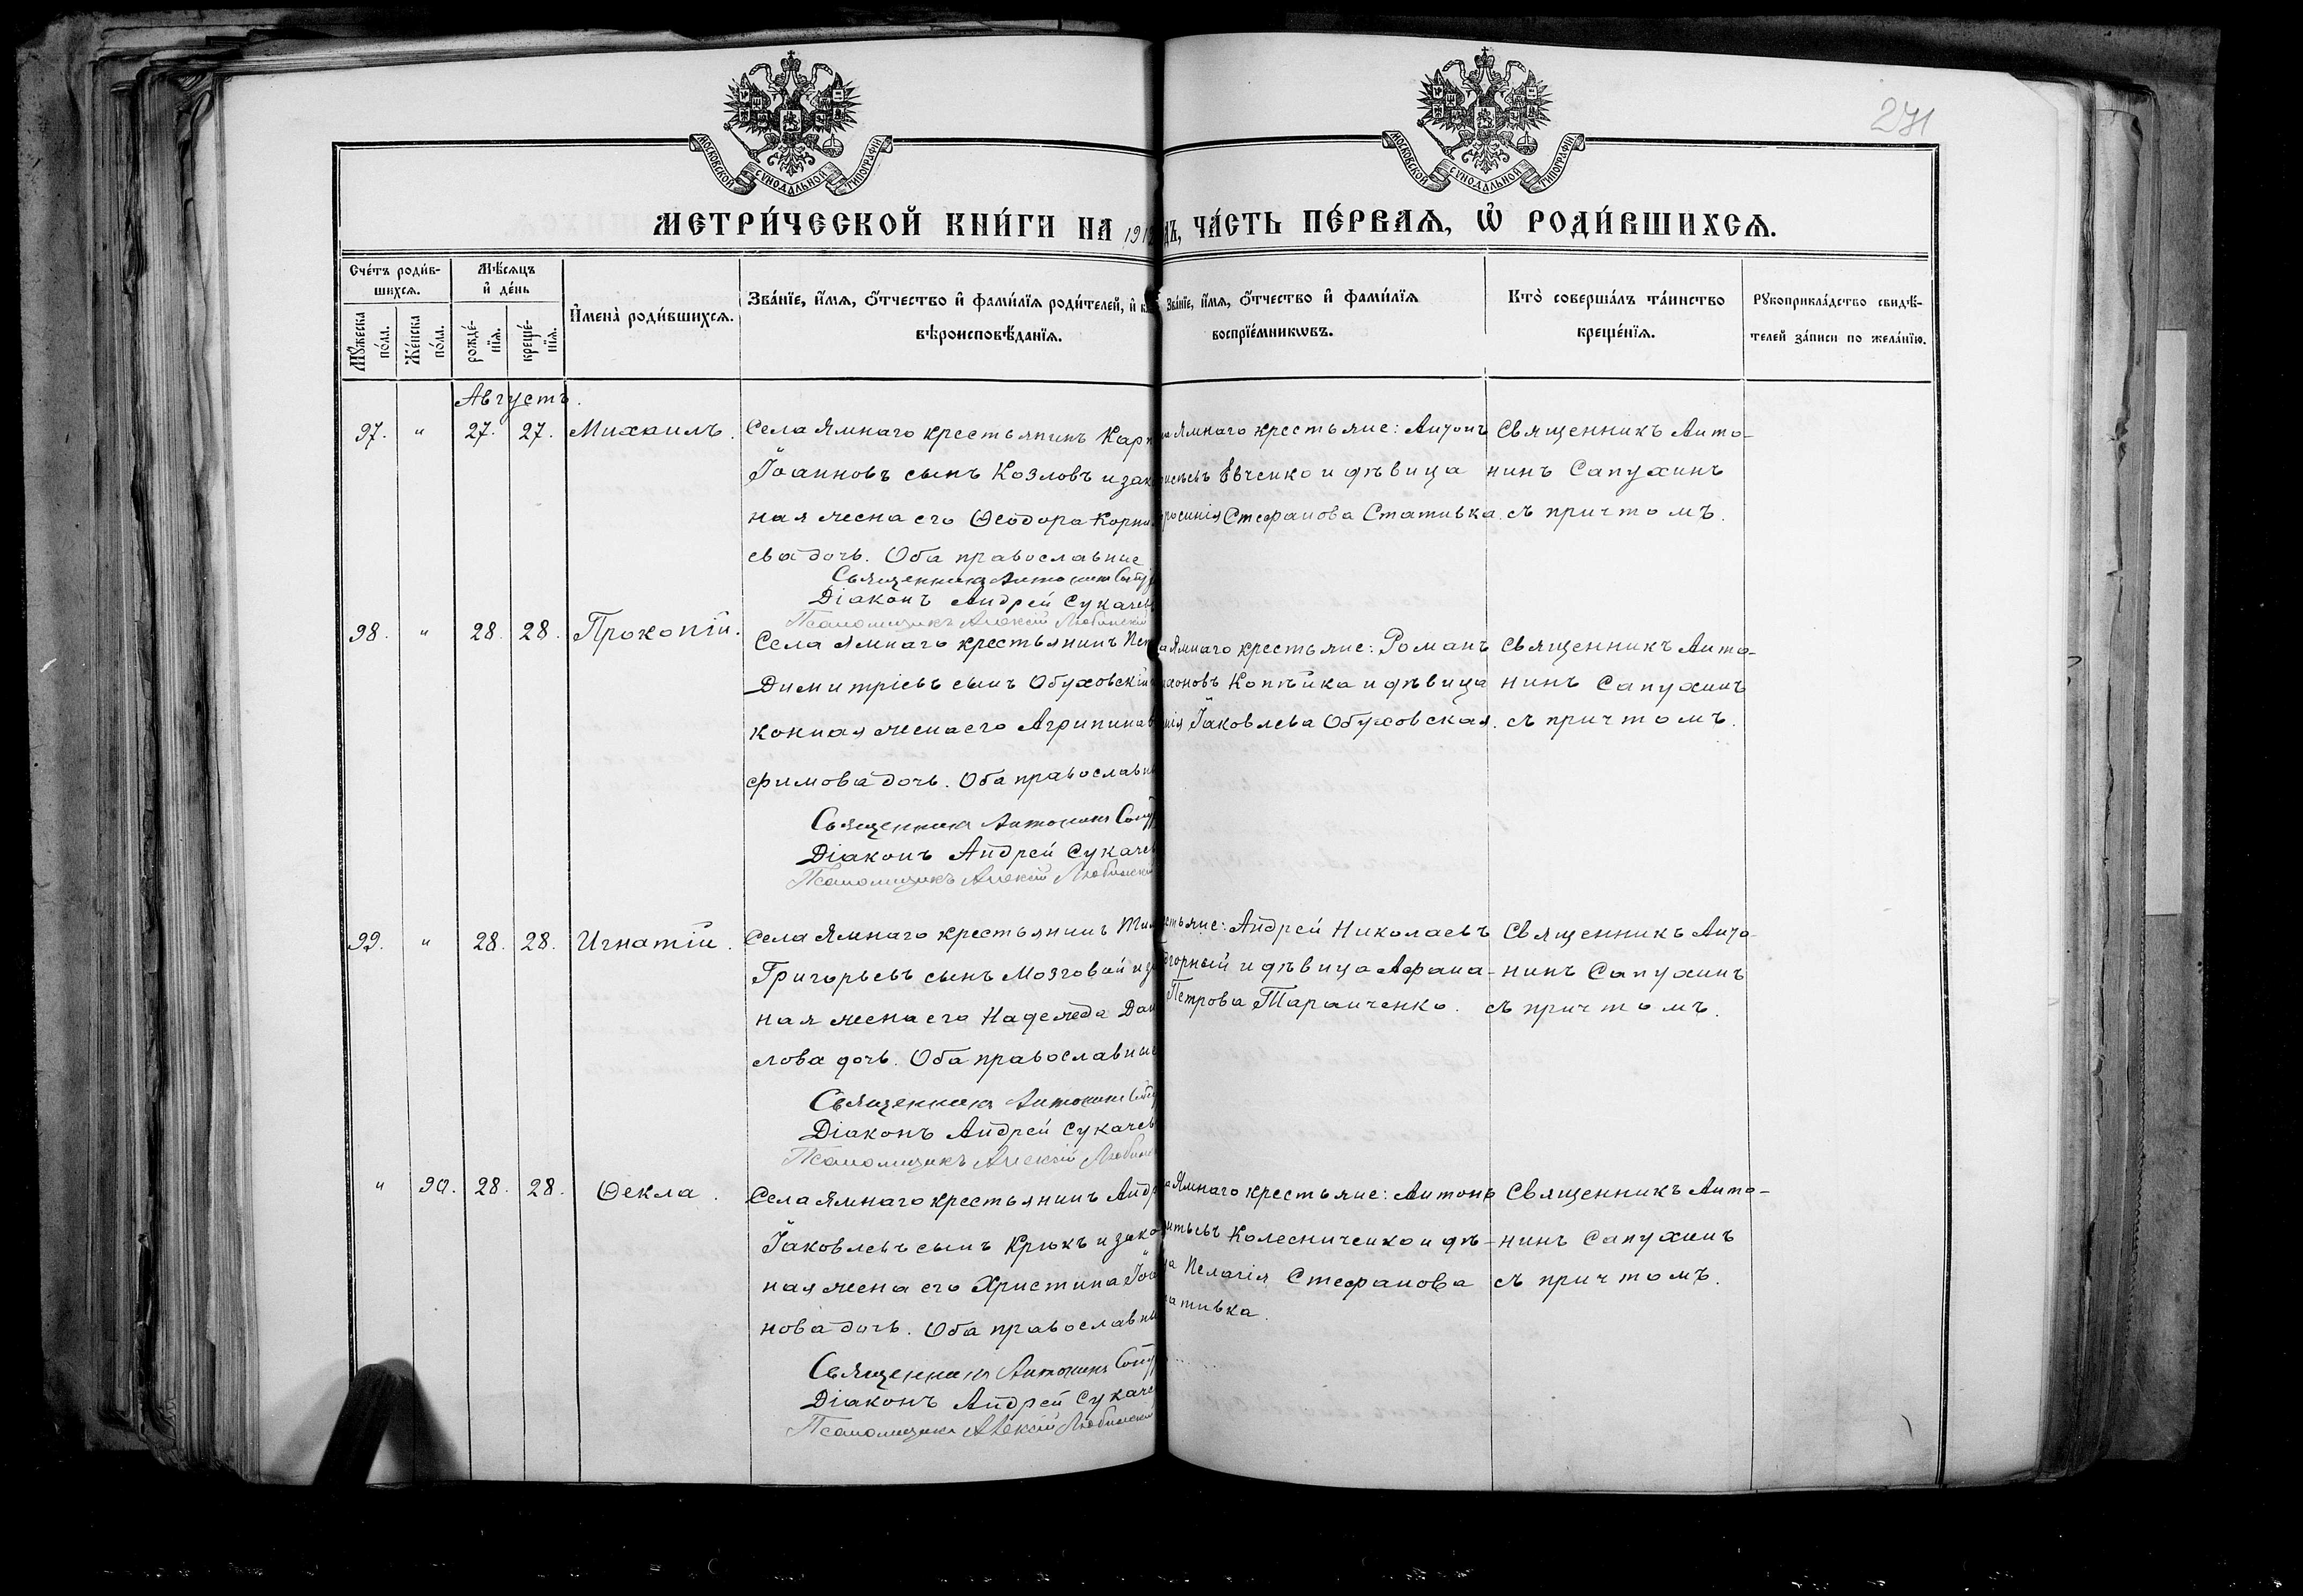 271
МОСКОВСКОЙ СѴНОДАЛЬНОЙ ТИПОГРАФІИ
МОСКОВСКОЙ СѴНОДАЛЬНОЙ ТИПОГРАФІИ
МЕТРИ́ЧЕСКОЙ КНИ́ГИ НА 191
Ъ, ЧА́СТЬ ПЕ́РВАЯ, Ѡ҆ РОДИ́ВШИХСЯ.
Сче́тъ роди́в-
шихся.
Мѣ́сяцъ
и҆ де́нь
Мꙋ́жеска
по́ла.
Же́нска
по́ла.
рожде́-
нїя.
креще́-
нїя.
И҆мена̀ роди́вшихся.
Зва́нїе, и҆́мя, ѻ҆́тчество и҆ фами́лїя роди́телей, и҆
вѣроисповѣ́данїя.
Зва́нїе, и҆́мя, ѻ҆́тчество и҆ фами́лїя
воспрїе́мникѡвъ.
Кто̀ соверша́лъ та́инство
креще́нїя.
Рꙋкоприкла́дство свидѣ́-
телей за́писи по жела́нїю.
Августъ.
97. " 27. 27. Михаилъ.
Села Ямнаго крестьянинъ Карп
Іоанновъ сынъ Козловъ и зак
ная жена его Ѳеодора Корни
ева дочь. Оба православные
Священникъ Антонинъ Сапу
Діаконъ Андрей Сукачев
Псаломщикъ Алексій Любинскій
Ямнаго крестьяне: Антонъ
Евченко и дѣвица
росинія Стефанова Стативка.
Священникъ Анто-
нинъ Сапухинъ
съ причтомъ.
98. " 28. 28. Прокопій.
Села Ямнаго крестьянинъ Пет
Димитріевъ сынъ Обуховскій
конная жена его Агрипина
фимова дочь. Оба православн
Священникъ Антонинъ Сапу
Діаконъ Андрей Сукачев
Псаломщикъ Алексій Любинскій
а Ямнаго крестьяне: Романъ
Копѣйка и дѣвица
нія Іаковлева Обуховская.
Священникъ Анто-
нинъ Сапухинъ
съ причтомъ.
99. " 28. 28. Игнатій.
Села Ямнаго крестьянинъ Тим
Григорьевъ сынъ Мозговой и за
ная жена его Надежда Дан
лова дочь. Оба православные
Священникъ Антонинъ Сапу
Діаконъ Андрей Сукачев
Псаломщикъ Алексій Любинск
стьяне: Андрей Николаевъ
дгорный и дѣвица Афана-
Петрова Таранченко.
Священникъ Анто-
нинъ Сапухинъ
съ причтомъ.
" 90. 28. 28. Ѳекла.
Села Ямнаго крестьянинъ Андр
Іаковлевъ сынъ Крюкъ и зако
ная жена его Христина Іоа
нова дочь. Оба православны
Священникъ Антонинъ Сапу
Діаконъ Андрей Сукаче
Псаломщикъ Алексій Любинскій
а Ямнаго крестьяне: Антонъ
Колесниченко и дѣ-
ца Пелагія Стефанова
ативка.
Священникъ Анто-
нинъ Сапухинъ
съ причтомъ.